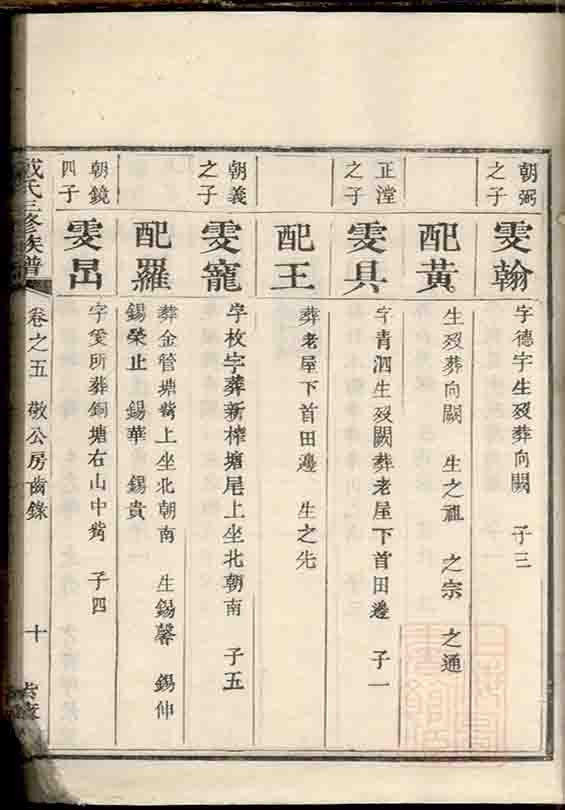 朝弼之子
雯翰
字德宇生歿葬向闕 子三
配黃
生歿葬向闕 生之祖 之宗 之通
正瀅之子
雯具
字青泗生歿闕葬老屋下首田邊 子一
配王
葬老屋下首田邊 生之先
朝義之子
雯寵
字枚字葬新榨塘尾上坐北朝南 子五
配羅
葬金管塘嘴上坐北朝南 生錫馨 錫仲
錫榮止 錫華 錫貴
朝鏡四子
雯昂
字愛所葬銅塘右山中嘴 子四
氏三修族譜 卷之五 敬公房齒錄 十